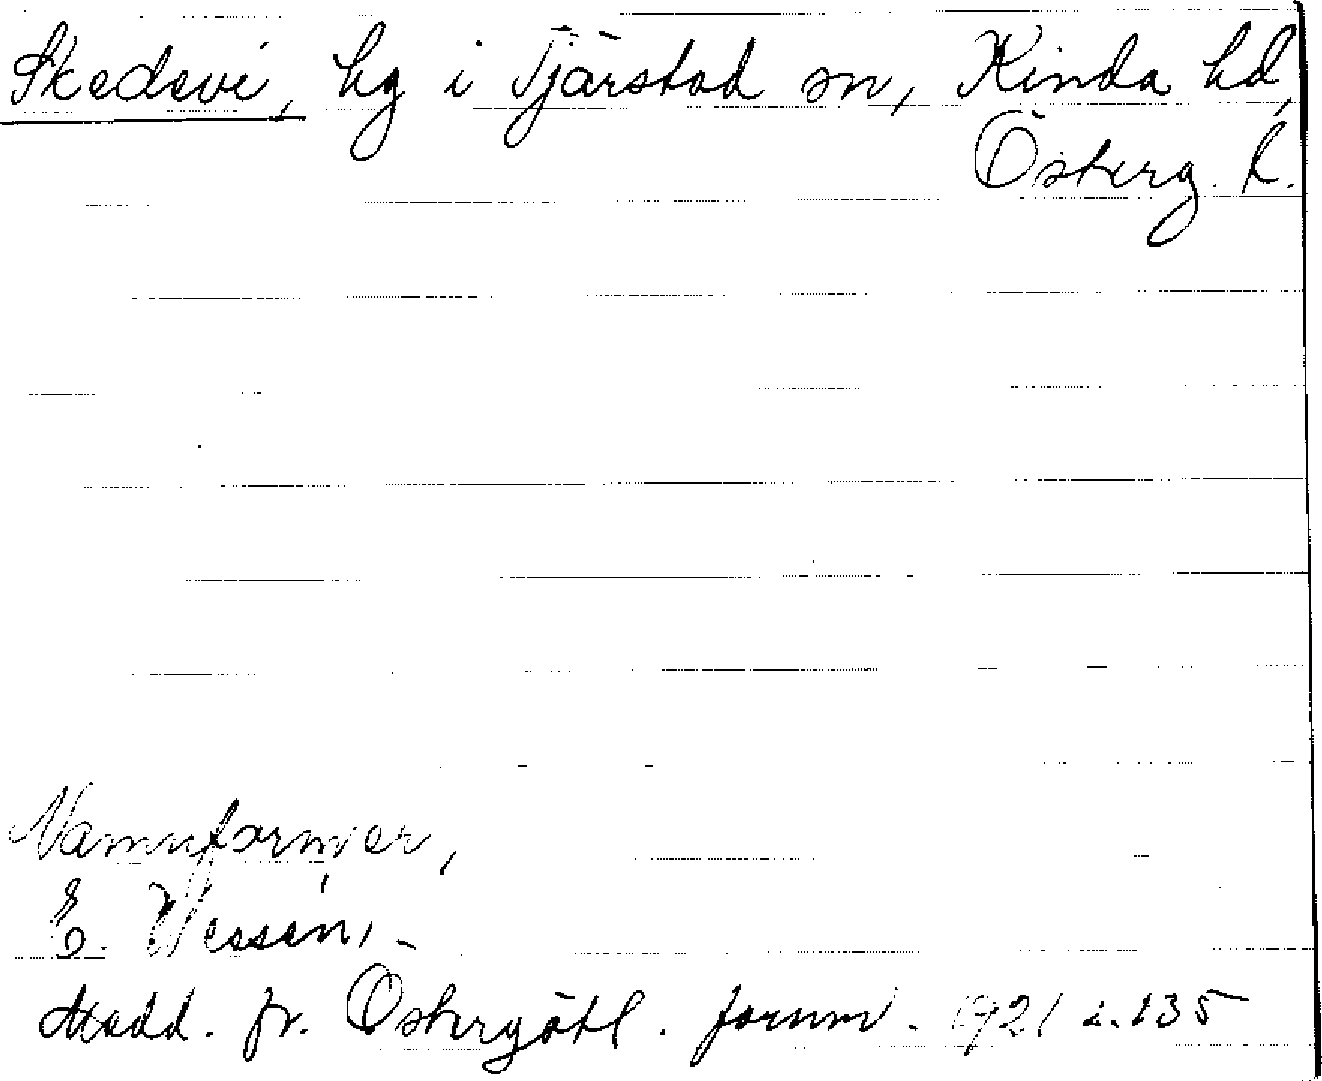 Skedevi, hg i Tjärstad sn, Kinda hd,
Österg. l.
Namnformer,
E. Wessén, -
Medd. fr. Östergötl. fornmi. 1921 s. 135